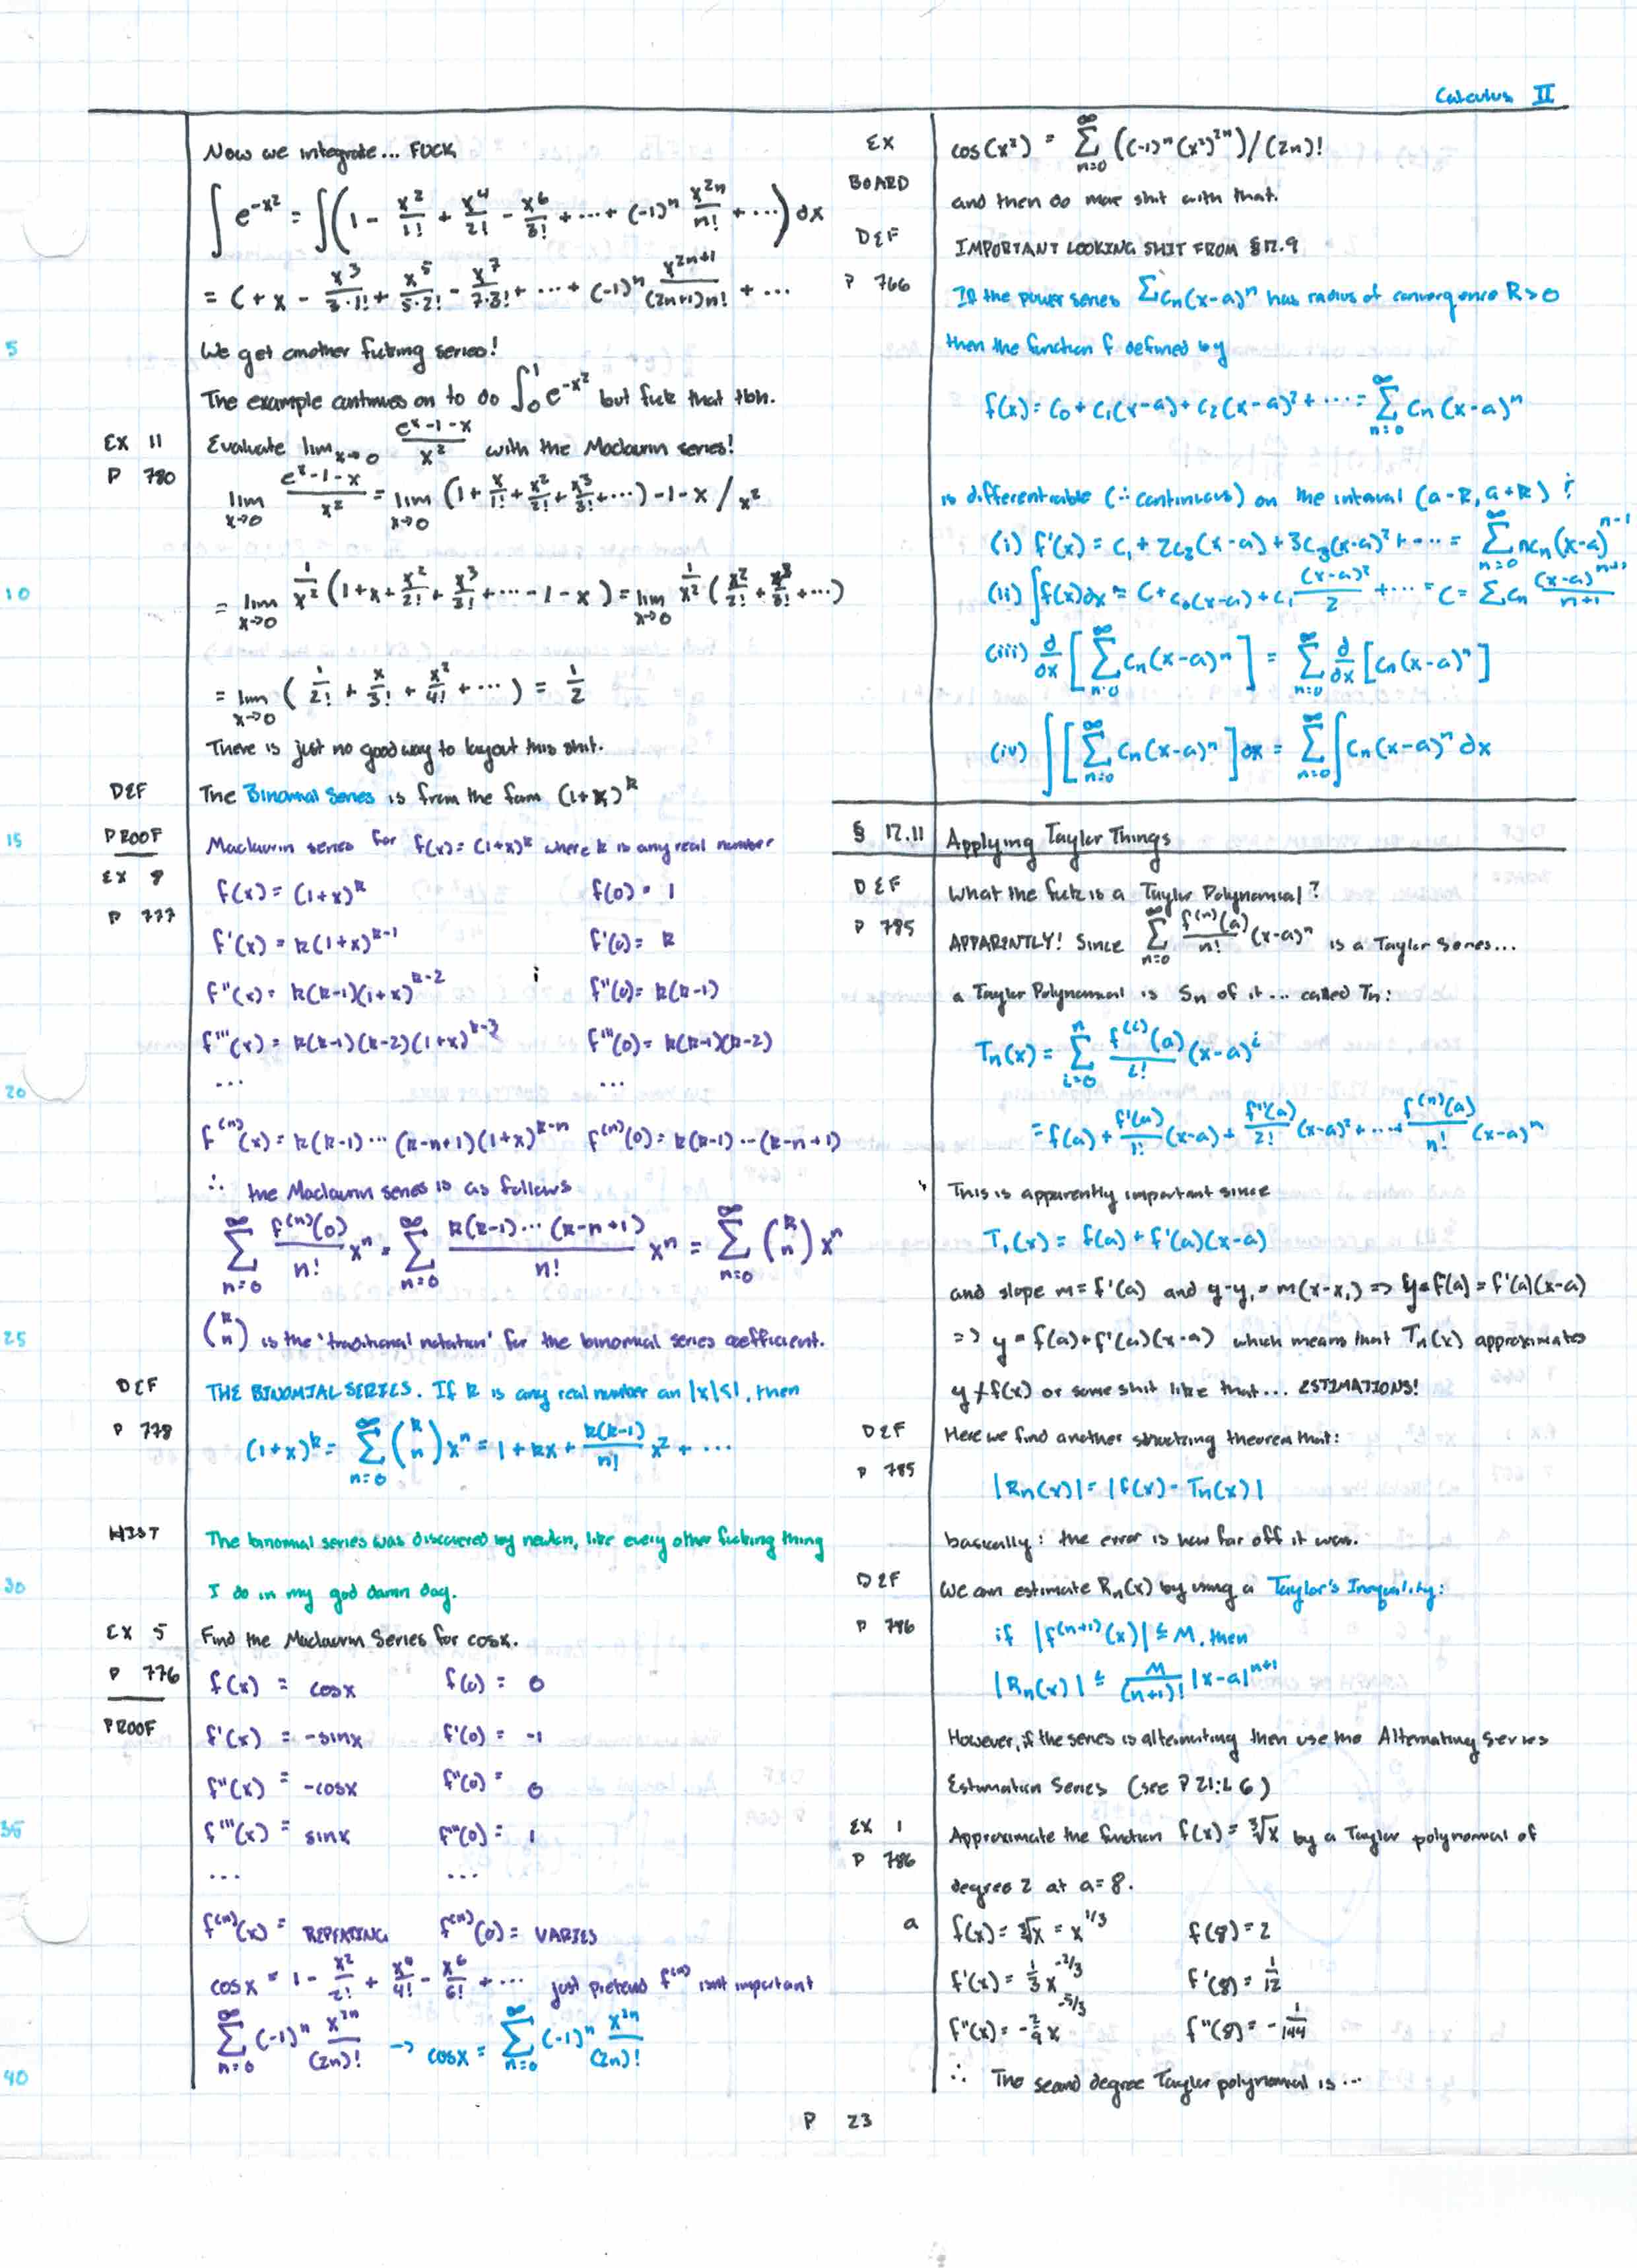 Calculus II
Now we integrate... FUCK
∫ e^{-x²} = ∫(1 - x²/1! + x⁴/2! - x⁶/3! + ··· + (-1)ⁿ x^{2n}/n! + ···) dx
= C + x - x³/3·1! + x⁵/5·2! - x⁷/7·3! + ··· + (-1)ⁿ x^{2n+1}/(2n+1)n! + ···
5 We get another fucking series!
The example continues on to do ∫₀¹ e^{-x²} but fuck that tbh.
EX 11 Evaluate lim_{x→0} (e^x-1-x)/x² with the Maclaurin series!
P 780 lim_{x→0} (e^x-1-x)/x² = lim_{x→0} (1 + x/1! + x²/2! + x³/3! + ···) - 1 - x / x²
10 = lim_{x→0} 1/x² (1 + x + x²/2! + x³/3! + ··· - 1 - x) = lim_{x→0} 1/x² (x²/2! + x³/3! + ···)
= lim_{x→0} (1/2! + x/3! + x²/4! + ···) = 1/2
There is just no good way to layout this shit.
DEF The Binomial Series is from the form (1+x)^k
15 PROOF Maclaurin series for f(x) = (1+x)^k where k is any real number
EX 8 f(x) = (1+x)^k f(0) = 1
P 777 f'(x) = k(1+x)^{k-1} f'(0) = k
f''(x) = k(k-1)(1+x)^{k-2} f''(0) = k(k-1)
f'''(x) = k(k-1)(k-2)(1+x)^{k-3} f'''(0) = k(k-1)(k-2)
20 ··· ···
f^{(n)}(x) = k(k-1)···(k-n+1)(1+x)^{k-n} f^{(n)}(0) = k(k-1)···(k-n+1)
∴ the Maclaurin series is as follows
∑_{n=0}^∞ f^{(n)}(0)/n! xⁿ = ∑_{n=0}^∞ k(k-1)···(k-n+1)/n! xⁿ = ∑_{n=0}^∞ (k n) xⁿ
25 (k n) is the 'traditional notation' for the binomial series coefficient.
DEF THE BINOMIAL SERIES. If k is any real number an |x|<1, then
P 778 (1+x)^k = ∑_{n=0}^∞ (k n) xⁿ = 1 + kx + k(k-1)/n! x² + ···
HIST The binomial series was discovered by newton, like every other fucking thing
30 I do in my god damn day.
EX 5 Find the Maclaurin Series for cosx.
P 776 f(x) = cosx f(0) = 0
PROOF f'(x) = -sinx f'(0) = -1
f''(x) = -cosx f''(0) = 0
35 f'''(x) = sinx f'''(0) = 1
··· ···
f^{(n)}(x) = REPEATING f^{(n)}(0) = VARIES
cosx = 1 - x²/2! + x⁴/4! - x⁶/6! + ··· just pretend f^{(n)} isnt important
40 ∑_{n=0}^∞ (-1)ⁿ x^{2n}/(2n)! → cosx = ∑_{n=0}^∞ (-1)ⁿ x^{2n}/(2n)!
EX cos(x²) = ∑_{n=0}^∞ ((-1)ⁿ(x²)^{2n})/(2n)!
BOARD and then do mor shit with that.
DEF IMPORTANT LOOKING SHIT FROM §12.9
P 766 If the power series ∑cₙ(x-a)ⁿ has radius of convergence R>0
then the function f defined by
f(x) = c₀ + c₁(x-a) + c₂(x-a)² + ··· = ∑_{n=0}^∞ cₙ(x-a)ⁿ
is differentiable (∴ continuous) on the interval (a-R, a+R) :
(i) f'(x) = c₁ + 2c₂(x-a) + 3c₃(x-a)² + ··· = ∑_{n=0}^∞ ncₙ(x-a)^{n-1}
(ii) ∫f(x)dx = C + c₀(x-a) + c₁ (x-a)²/2 + ··· = C = ∑cₙ (x-a)^{n+1}/n+1
(iii) d/dx [∑_{n=0}^∞ cₙ(x-a)ⁿ] = ∑_{n=0}^∞ d/dx [cₙ(x-a)ⁿ]
(iv) ∫[∑_{n=0}^∞ cₙ(x-a)ⁿ]dx = ∑_{n=0}^∞ ∫cₙ(x-a)ⁿ dx
§ 12.11 Applying Taylor Things
DEF What the fuck is a Taylor Polynomial?
P 785 APPARENTLY! Since ∑_{n=0}^∞ f^{(n)}(a)/n! (x-a)ⁿ is a Taylor Series...
a Taylor Polynomial is Sₙ of it... called Tₙ:
Tₙ(x) = ∑_{i=0}^n f^{(i)}(a)/i! (x-a)^i
= f(a) + f'(a)/1! (x-a) + f''(a)/2! (x-a)² + ··· + f^{(n)}(a)/n! (x-a)ⁿ
This is apparently important since
T₁(x) = f(a) + f'(a)(x-a)
and slope m = f'(a) and y-y₁ = m(x-x₁) => y-f(a) = f'(a)(x-a)
=> y = f(a) + f'(a)(x-a) which means that Tₙ(x) approximates
y ≠ f(x) or some shit like that... ESTIMATIONS!
DEF Here we find another theorem that:
P 785 |Rₙ(x)| = |f(x) - Tₙ(x)|
basically: the error is how far off it was.
DEF We can estimate Rₙ(x) by using a Taylor's Inequality:
P 786 if |f^{(n+1)}(x)| ≤ M, then
|Rₙ(x)| ≤ M/(n+1)! |x-a|^{n+1}
However, if the series is alternating then use the Alternating Series
Estimation Series (see P 21:L 6)
EX 1 Approximate the function f(x) = ∛x by a Taylor polynomial of
P 786 degree 2 at a=8.
a f(x) = ∛x = x^{1/3} f(8) = 2
f'(x) = 1/3 x^{-2/3} f'(8) = 1/12
f''(x) = -2/9 x^{-5/3} f''(8) = -1/144
∴ The second degree Taylor polynomial is ···
P 23